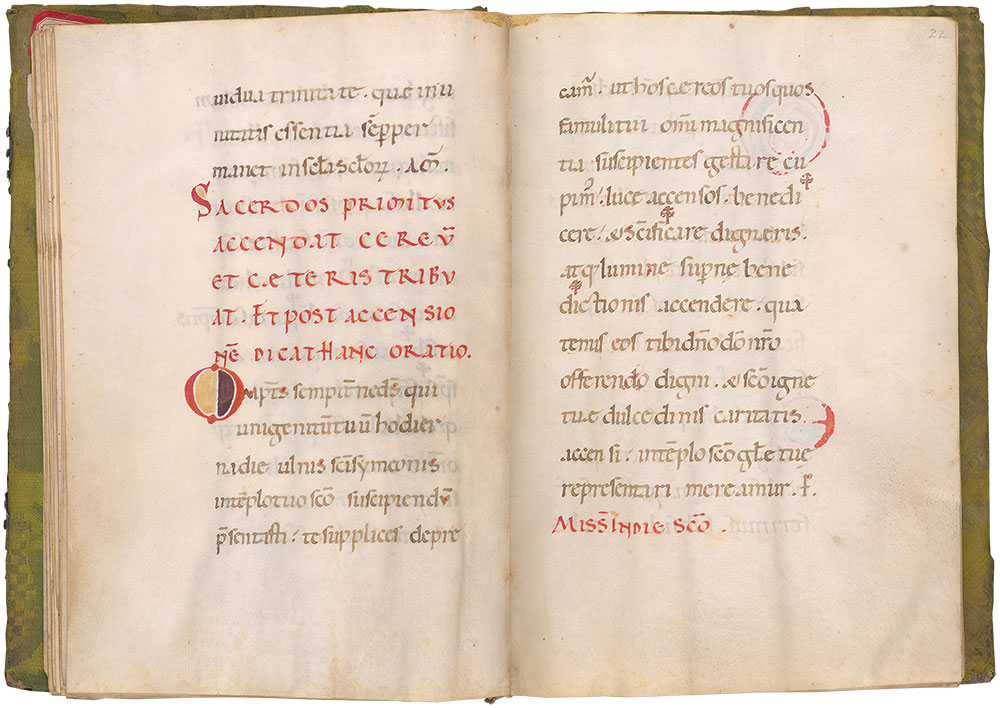 uidua trinitate. que in u
nitatis essentia sēp per
manet in sc̄la sc̄lorꝝ. am̄.
SACERDOS PRIMITUS
ACCENDAT CEREŪ
ET CETERIS TRIBU
AT. ET POST ACCENSIO
NĒ DICAT HANC ORATIO.
Omp̄ts sempit̄ne ds̄. qui
unigenitū tuū hodier
na die ulnis sc̄i symeonis
in tēplo tuo sc̄o suscipiendū
p̄sentisti. te supplices depre
22
cam̄. ut hos cereos tuos quos
famuli tui om̄i magnificen
tia suscipientes gestare cu
pim̄. luce accensos. benedi
cere. & sc̄ificare digneris.
atq; lumine sup̄nę bene
dictionis accendere. qua
tenus eos tibi dn̄o dō nr̄o
offerendo digni. & sc̄o igne
tuę dulcedinis caritatis
accensi. in tēplo sc̄o gl̄e tue
representari mereamur. P.
MISS̄ IN DIE SC̄O.